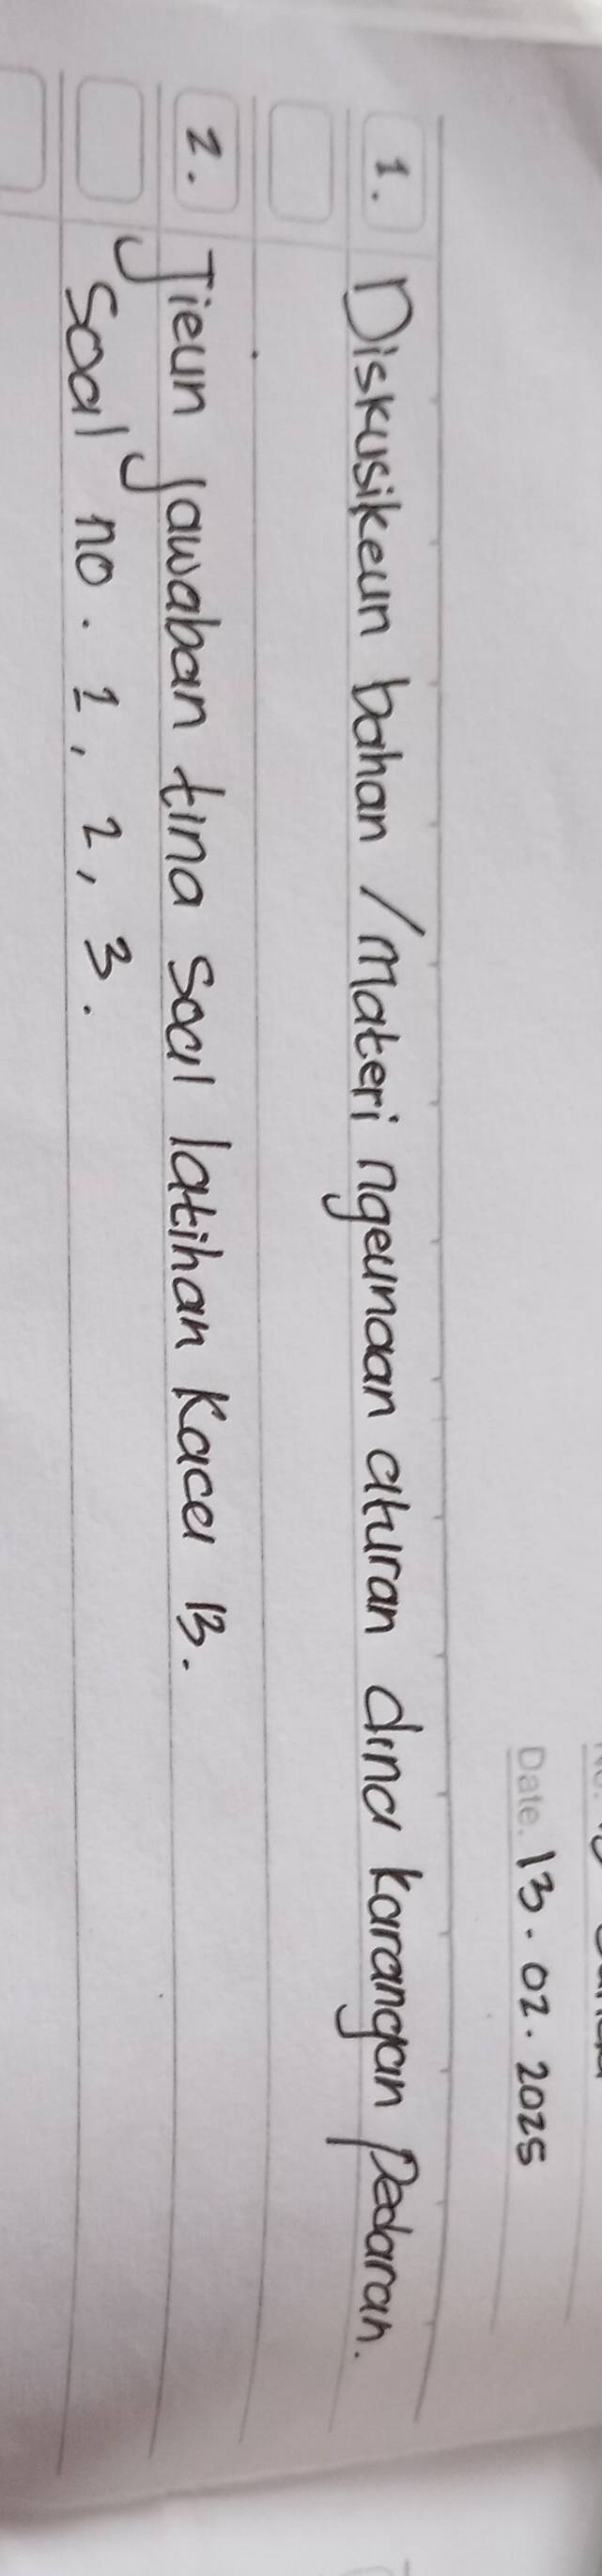 Date. 13.02.2025
1. Diskusikeun bahan / materi ngeunaan aturan dina karangan Pedaran.
2. Jieun jawaban tina soal latihan Kaca 13.
Soal no. 1, 2, 3.